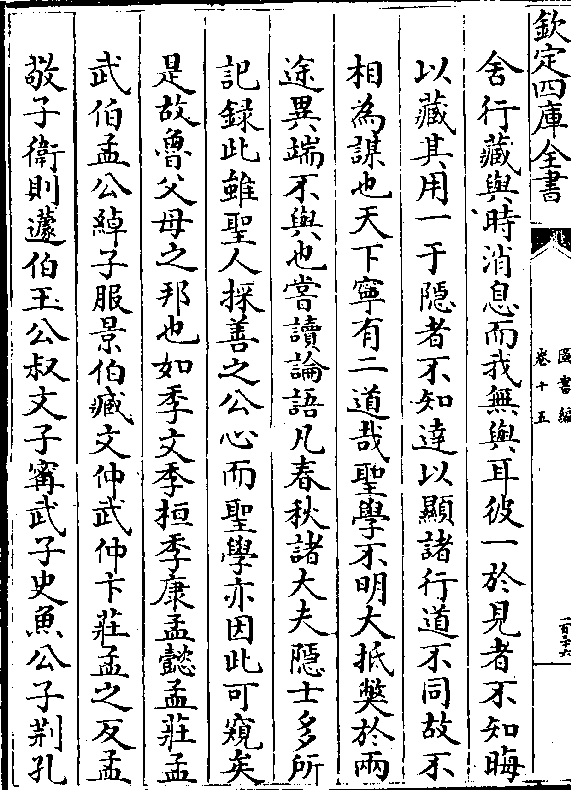 欽定四庫全書
圖書編
卷十五
一百三十六
舍行藏與時消息而我無與耳彼一於見者不知晦
以藏其用一于隱者不知達以顯諸行道不同故不
相為謀也天下寧有二道哉聖學不明大抵弊於兩
途異端不與也嘗讀論語凡春秋諸大夫隱士多所
記録此雖聖人採善之公心而聖學亦因此可窺矣
是故魯父母之邦也如季文季桓季康孟懿孟莊孟
武伯孟公綽子服景伯臧文仲武仲卞莊孟之反孟
敬子衛則蘧伯玉公叔文子甯武子史魚公子荆孔